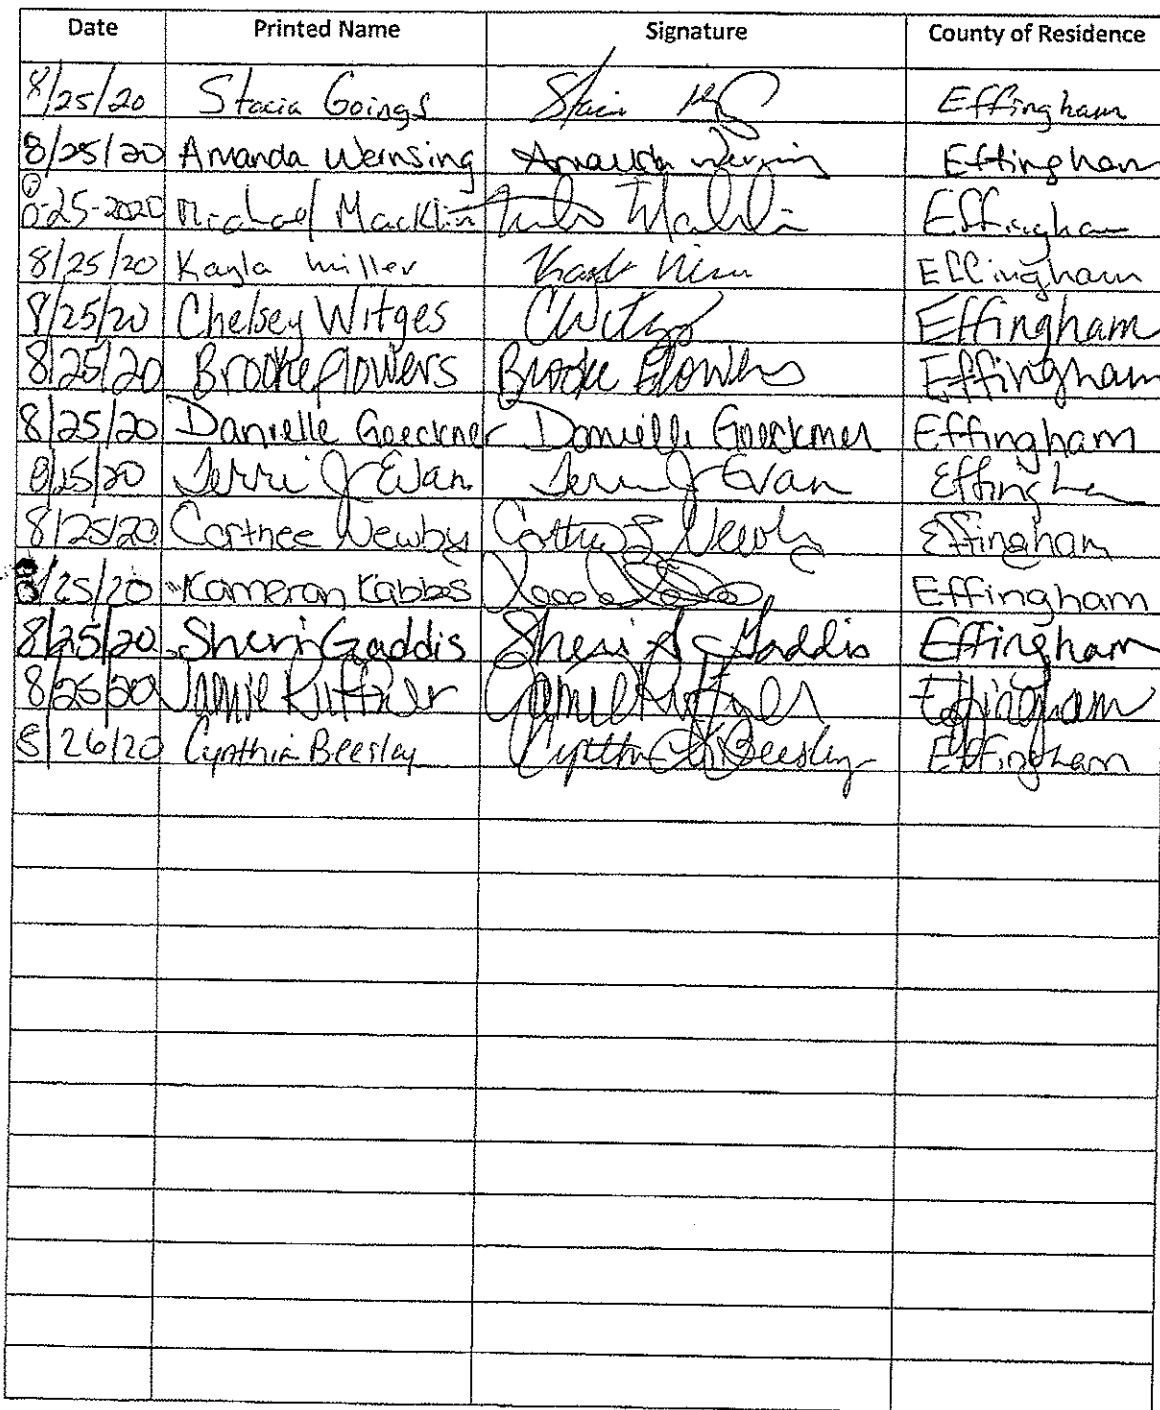 Date Printed Name Signature County of Residence
8/25/20 Stacia Goings Effingham
8/25/20 Amanda Wernsing Amanda Wernsing Effingham
8-25-2020 Michael Macklin Effingham
8/25/20 Kayla Miller Effingham
8/25/20 Chelsey Witges CWitges Effingham
8/25/20 Brooke Flowers Brooke Flowers Effingham
8/25/20 Danielle Goeckner Danielle Goeckner Effingham
8/25/20 Terri J Evan Terri J Evan Effingham
8/25/20 Cortnee Newby Effingham
8/25/20 Kameron Kabbes Effingham
8/25/20 Sherri Gaddis Sheri A Gaddis Effingham
8/25/20 Jamie Ruffner Jamie Ruffner Effingham
8/26/20 Cynthia Beesley Cynthia Beesley Effingham